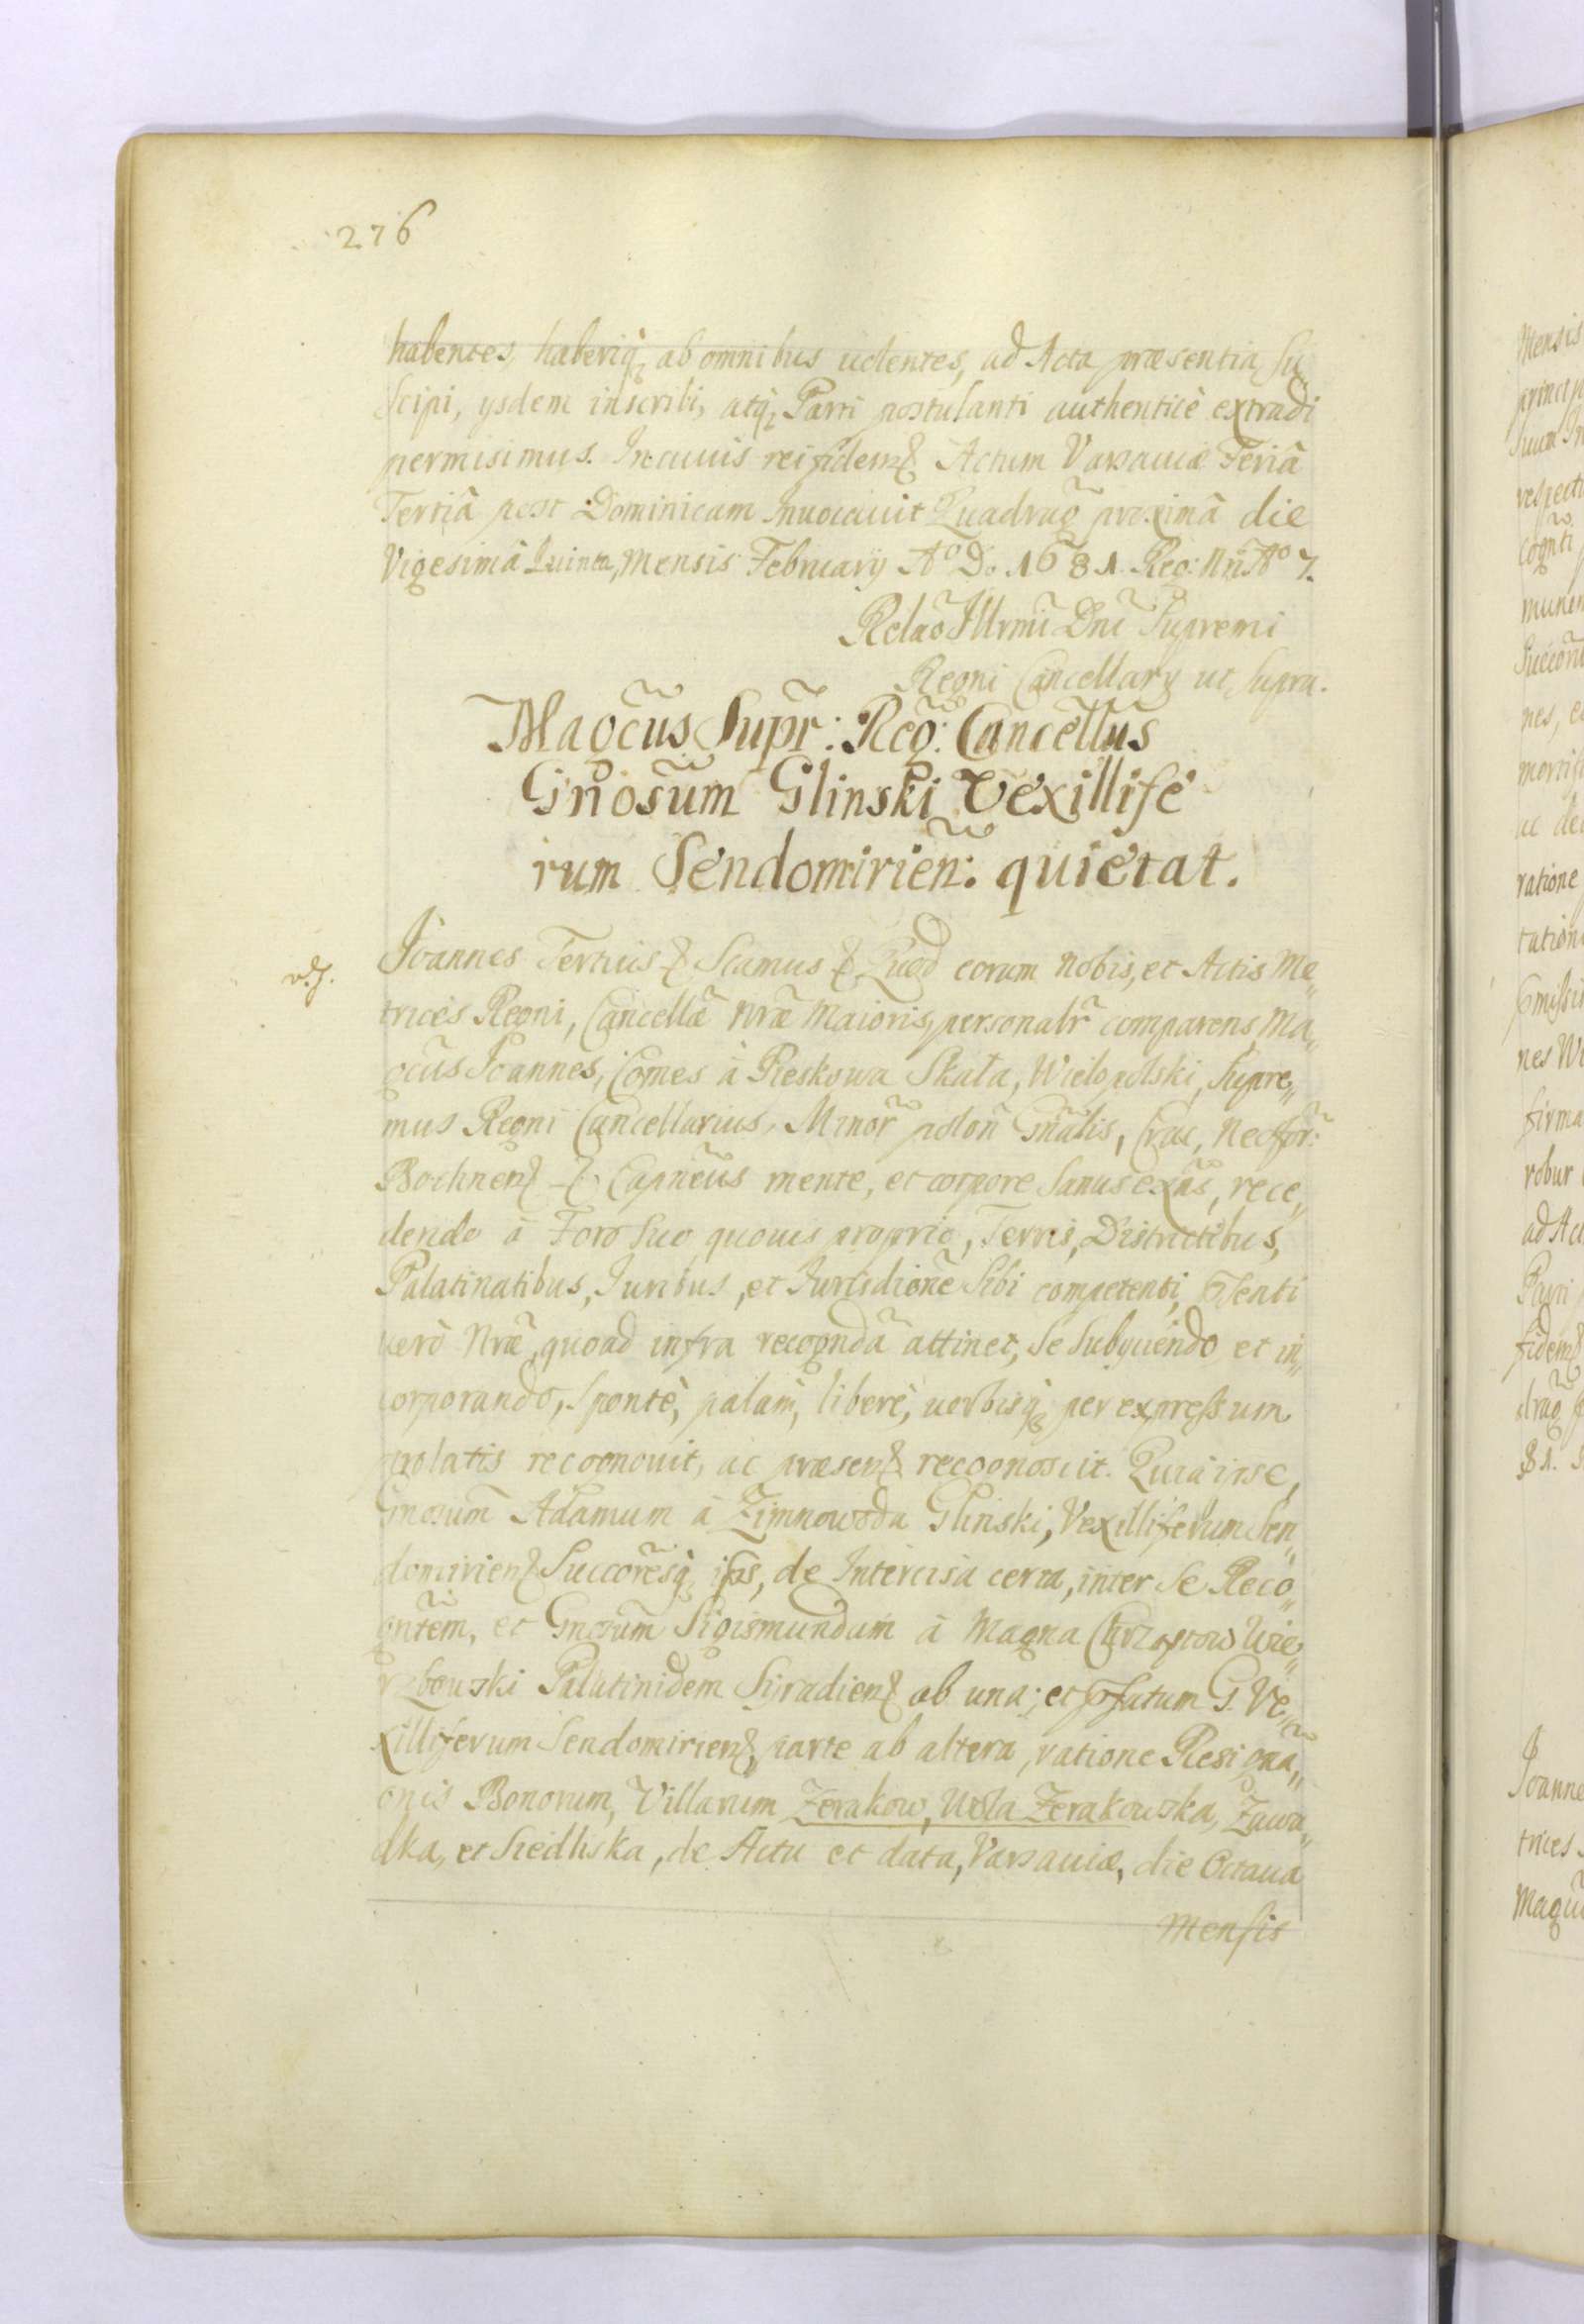 276
habentes haberiq; ab omnibus uolentes, ad Acta præsentia su„
scipi, ysdem inscribi, atq; Parti postulanti authenticè extradi
permisimus. In cuius rei fidem & Actum Varsauiæ Feriâ
Tertiâ post Dominicam Inuocauit Quadrag̃ proximâ die
Vigesimâ Quinta, Mensis February Aº Dº 1681. Reg: Nri Aº 7.
Relaõ Illrmi Dni Supremi
Regni Cancellary ut supra.
Magcũs Supr̃: Reg: Cancellũs
Gnosũm Glinski Vexillife
rum Sendomirien̄: quietat.
Joannes Tertius & Scamus & Quod coram Nobis, et Actis Me„
trices Regni, Cancellæ Nræ Maioris, personalr̃ comparens, Ma„
gcus Joannes, Comes à Pieskowa Skała, Wielopolski, Supre„
mus Regni Cancellarius, Minor̃ polon̄ Gnãlis, Crac, Neofor̃:
Bochnen & Capneũs mente, et corpore sanus exñs, rece„
dendo à Foro suo quouis proprio, Terris, Districtibus,
Palatinatibus, Iuribus, et Iurisdionẽ sibi competenti, Psenti
uerò Nræ, quoad infra recogndã attinet, se subyciendo et in„
corporando, Spontè, palàm, liberè, uerbisq; per expressum
prolatis recognouit, ac præsen & recognoscit. Quia ipse,
Gnosum Adamum à Zimnowoda Glinski, Vexilliferum Sen„
domirien & Succorẽsq; ips, de Intercisa certa, inter se Reco„
gntẽm, et Gnosum Sigismundum à Magna Chrząstow Wie„
rzbowski Palatinidem Siradien & ab una; et pfatum G. Ve„
xilliferum Sendomirien & parte ab altera, ratione Resigna„
onis Bonorum, Villarum Zerakow, Wola Zerakowska, Zawa„
dka, et Siedliska, de Actu et data, Varsauiæ, die Octaua
Mensis